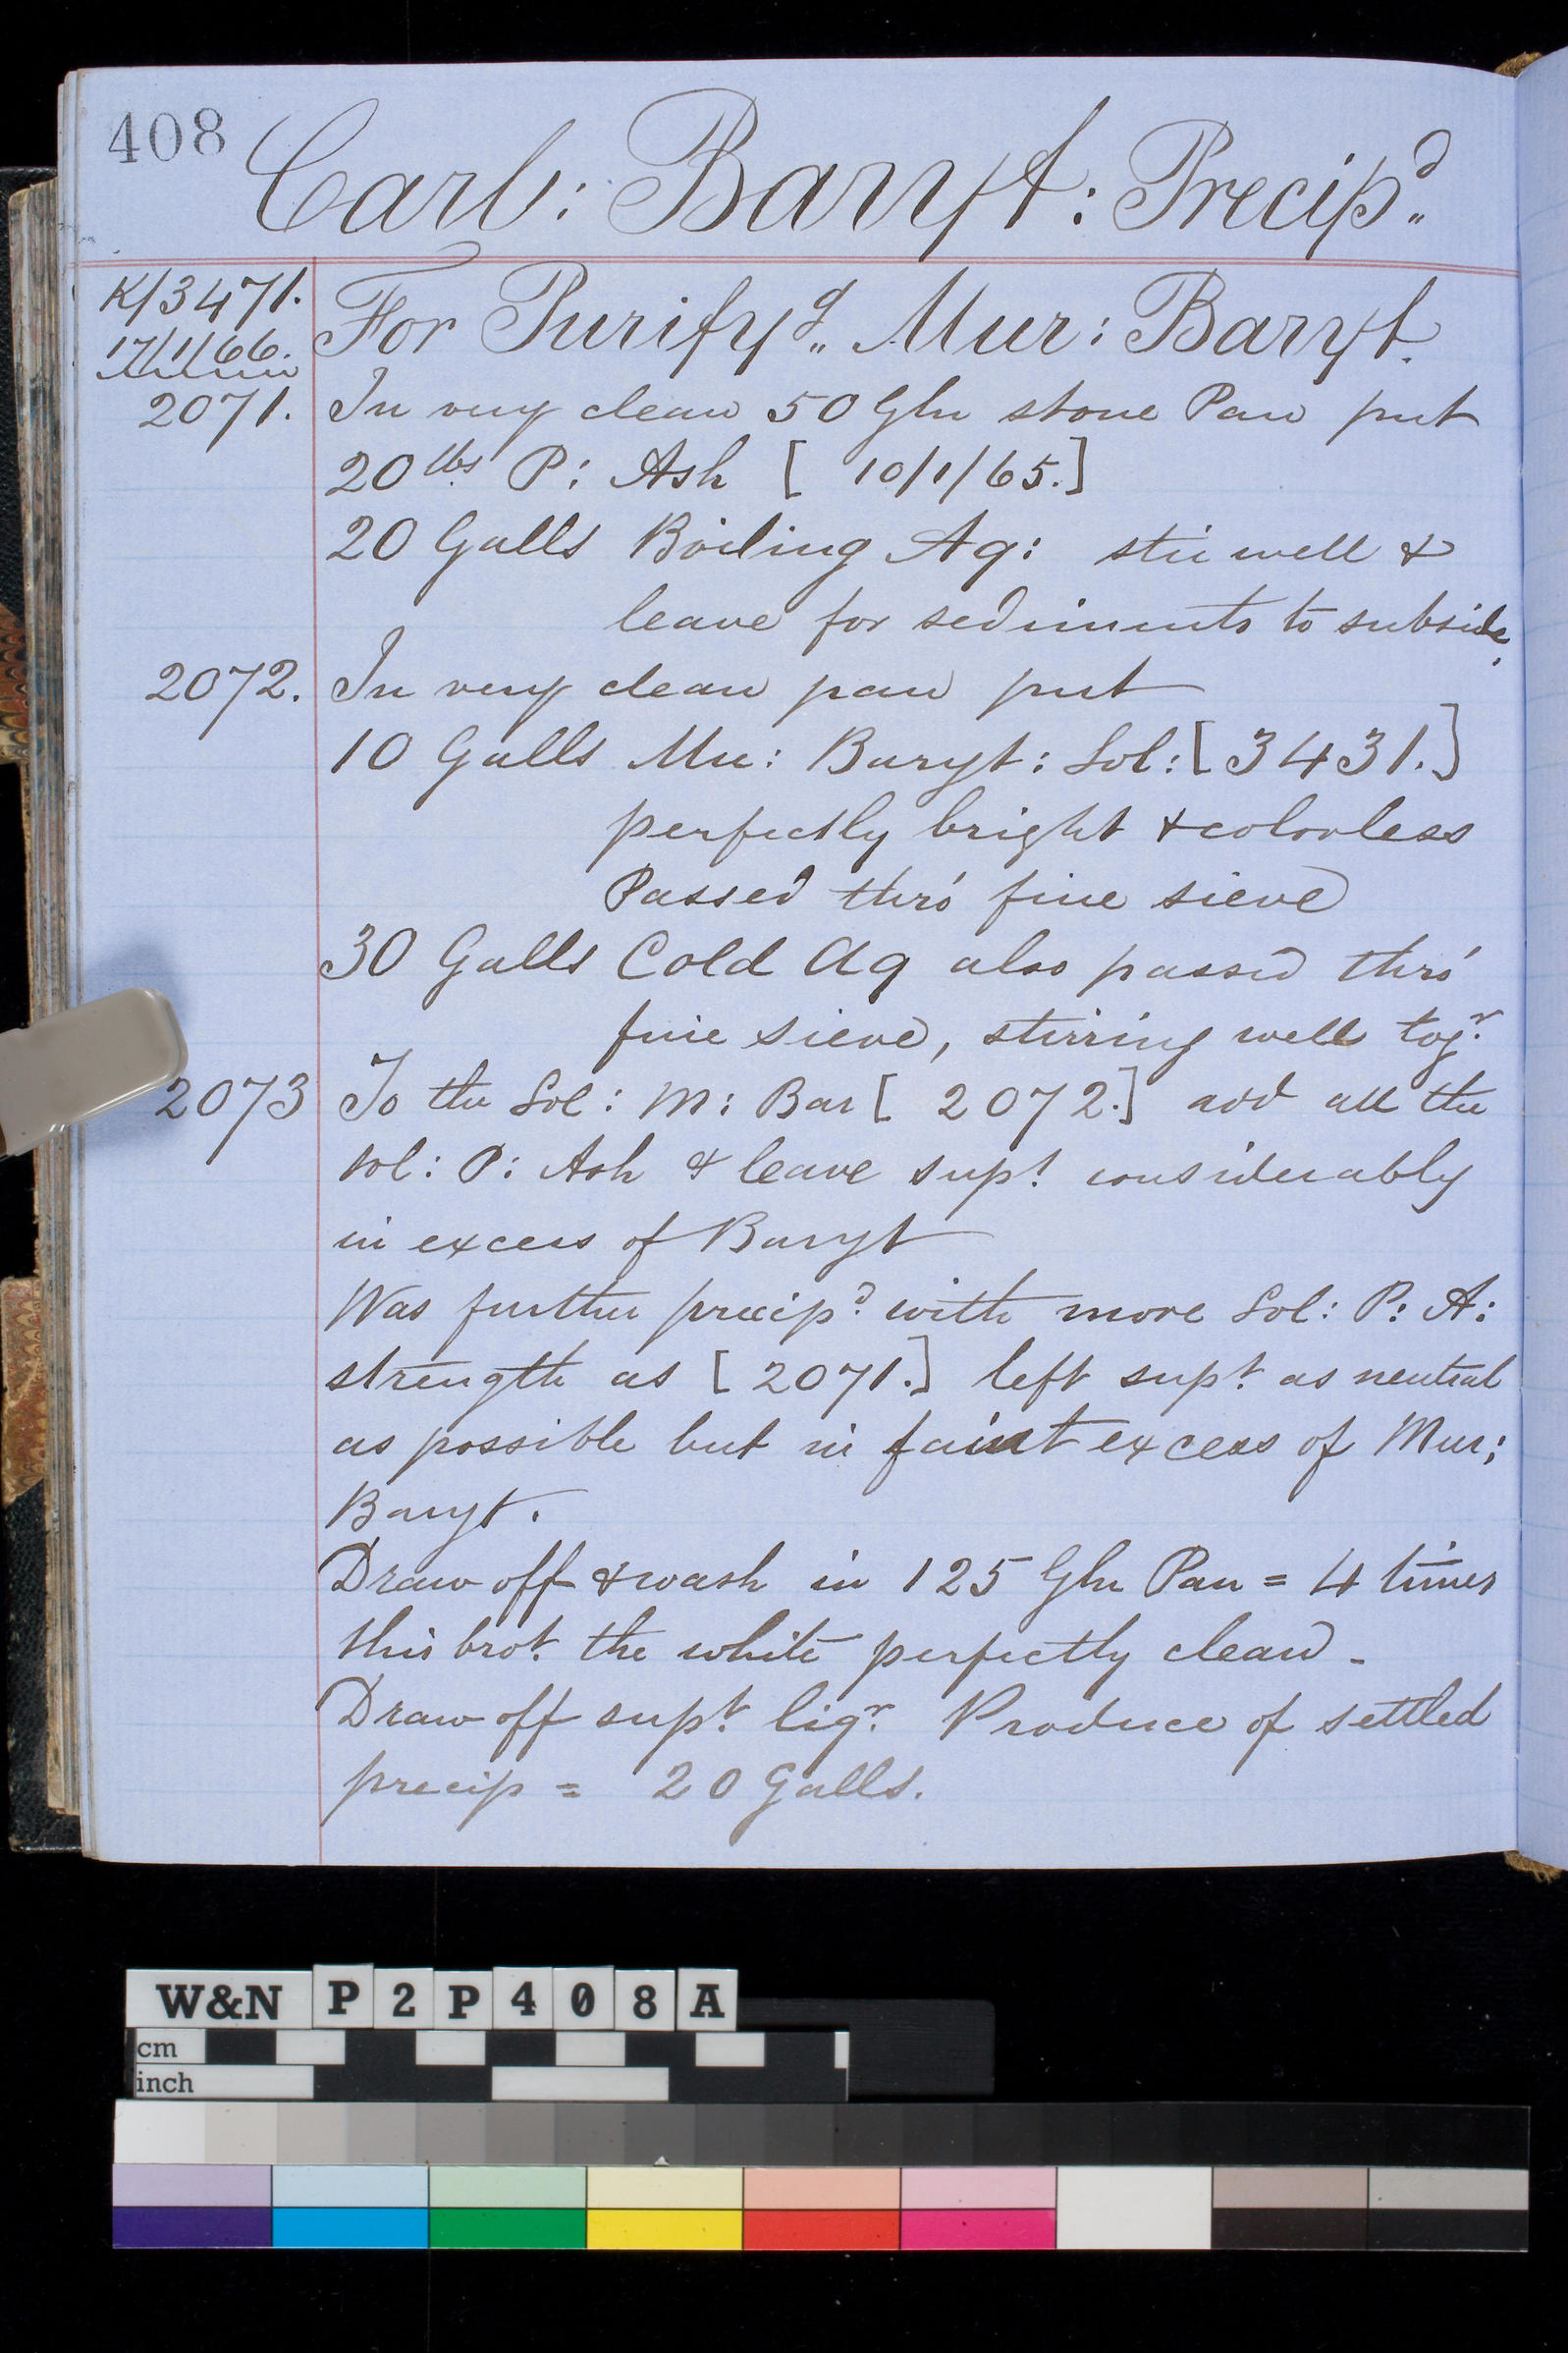 408
Carb: Baryt: Precipd
K/3471. For Purifyg Mur: Baryt.
17/1/66.
2071. In very clean 50 Gln stone Pan put
20 lbs P: Ash [ 10/1/65.]
20 Galls Boiling Aq: stir well &
leave for sediments to subside,
2072. In very clean pan put
10 Galls Mu: Baryt: Sol: [3431.]
perfectly bright & colorless
Passed thro' fine sieve
30 Galls Cold Aq also passed thro'
fine sieve, stirring well togr.
2073 To the Sol: M: Bar [ 2072.] add all the
sol: P: Ash & leave supt. considerably
in excess of Baryt
Was further precipd. with more Sol: P: A:
strength as [2071.] left supt. as neutral
as possible but in faint excess of Mur:
Baryt.
Draw off & wash in 125 Gln Pan = 4 times
this brot. the white perfectly clean -
Draw off supt. liqr. Produce of settled
precip = 20 Galls.
W&N P2P408A
cm
inch